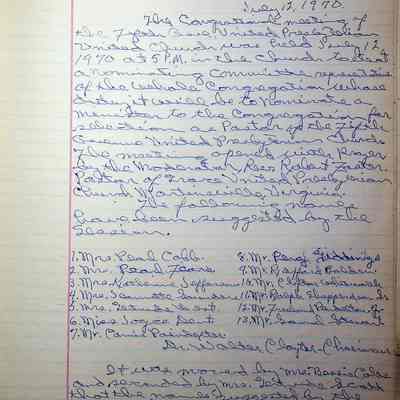 July 12, 1970.
The Congregational meeting of
the Fifth Ave, United Presbyterian
United Church was held July 12,
1970 at 5 P.M. in the Church to elect
a nominating committee representative
of the whole Congregation whose
duty it will be to nominate a
Minister to the Congregation for
election as Pastor of the Fifth
Avenue United Presbyterian Church.
The meeting opened with Prayer
by the Moderator, Rev. Robert
Pastor of Grace United Presbyterian
Church, Martinsville, Virginia.
The following names
have been suggested by the
Session.
1. Mrs. Pearl Cobb. 8. Mr. Percy Giddings
2. Mrs. Pearl 9. Mr.
3. Mrs. Jefferson 10. Mr. Clifton
4. Mrs. Jeanette Saunders 11. Mr. Ralph Shepperson, Jr.
5. Mrs. Gertrude Scott, 12. Mr.
6. Miss Joyce Scott 13. Mr. Samuel Stewart
7. Mr. Carnie Poindexter
Dr. Walter Claytor - Chairman
It was moved by Mrs. Bessie
and seconded by Mrs. Gertrude Scott
that the names suggested by the